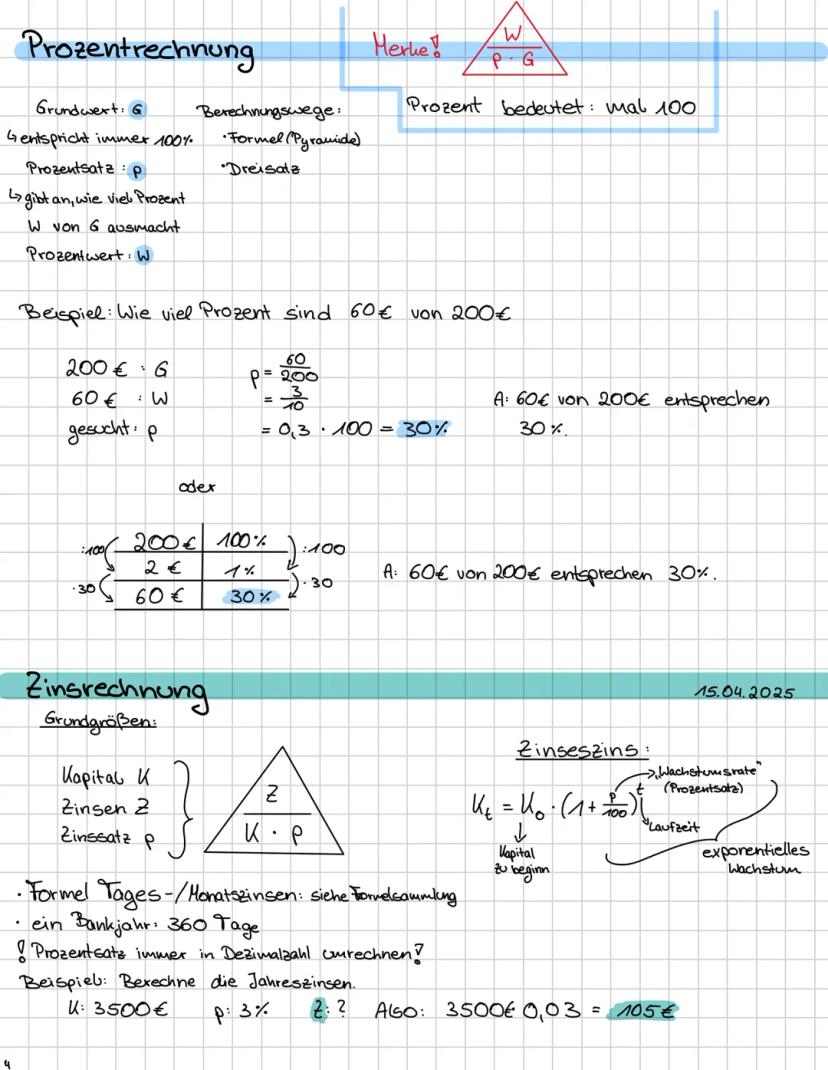 Prozentrechnung
Merke!
W
p · G
Prozent bedeutet: mal 100
Grundwert: G
↳ entspricht immer 100%
Prozentsatz : p
↳ gibt an, wie viel Prozent
W von G ausmacht
Prozentwert : W
Berechnungswege:
· Formel (Pyramide)
· Dreisatz
Beispiel: Wie viel Prozent sind 60€ von 200€
200 € : G
60 € : W
gesucht: p
p = 60/200
= 3/10
= 0,3 · 100 = 30%
A: 60€ von 200€ entsprechen
30%.
oder
:100 200€ 100% :100
2 € 1%
·30 60 € 30% ·30
A: 60€ von 200€ entsprechen 30%.
Zinsrechnung
15.04.2025
Grundgrößen:
Kapital K
Zinsen Z
Zinssatz p
Z
K · p
Zinseszins:
→ „Wachstumsrate"
(Prozentsatz)
K_t = K_0 · (1 + p/100)^t
↳ Laufzeit
Kapital
zu beginn
exponentielles
Wachstum
· Formel Tages-/Monatszinsen: siehe Formelsammlung
· ein Bankjahr: 360 Tage
! Prozentsatz immer in Dezimalzahl umrechnen!
Beispiel: Berechne die Jahreszinsen.
K: 3500€ p: 3% Z: ? Also: 3500€·0,03 = 105€
4